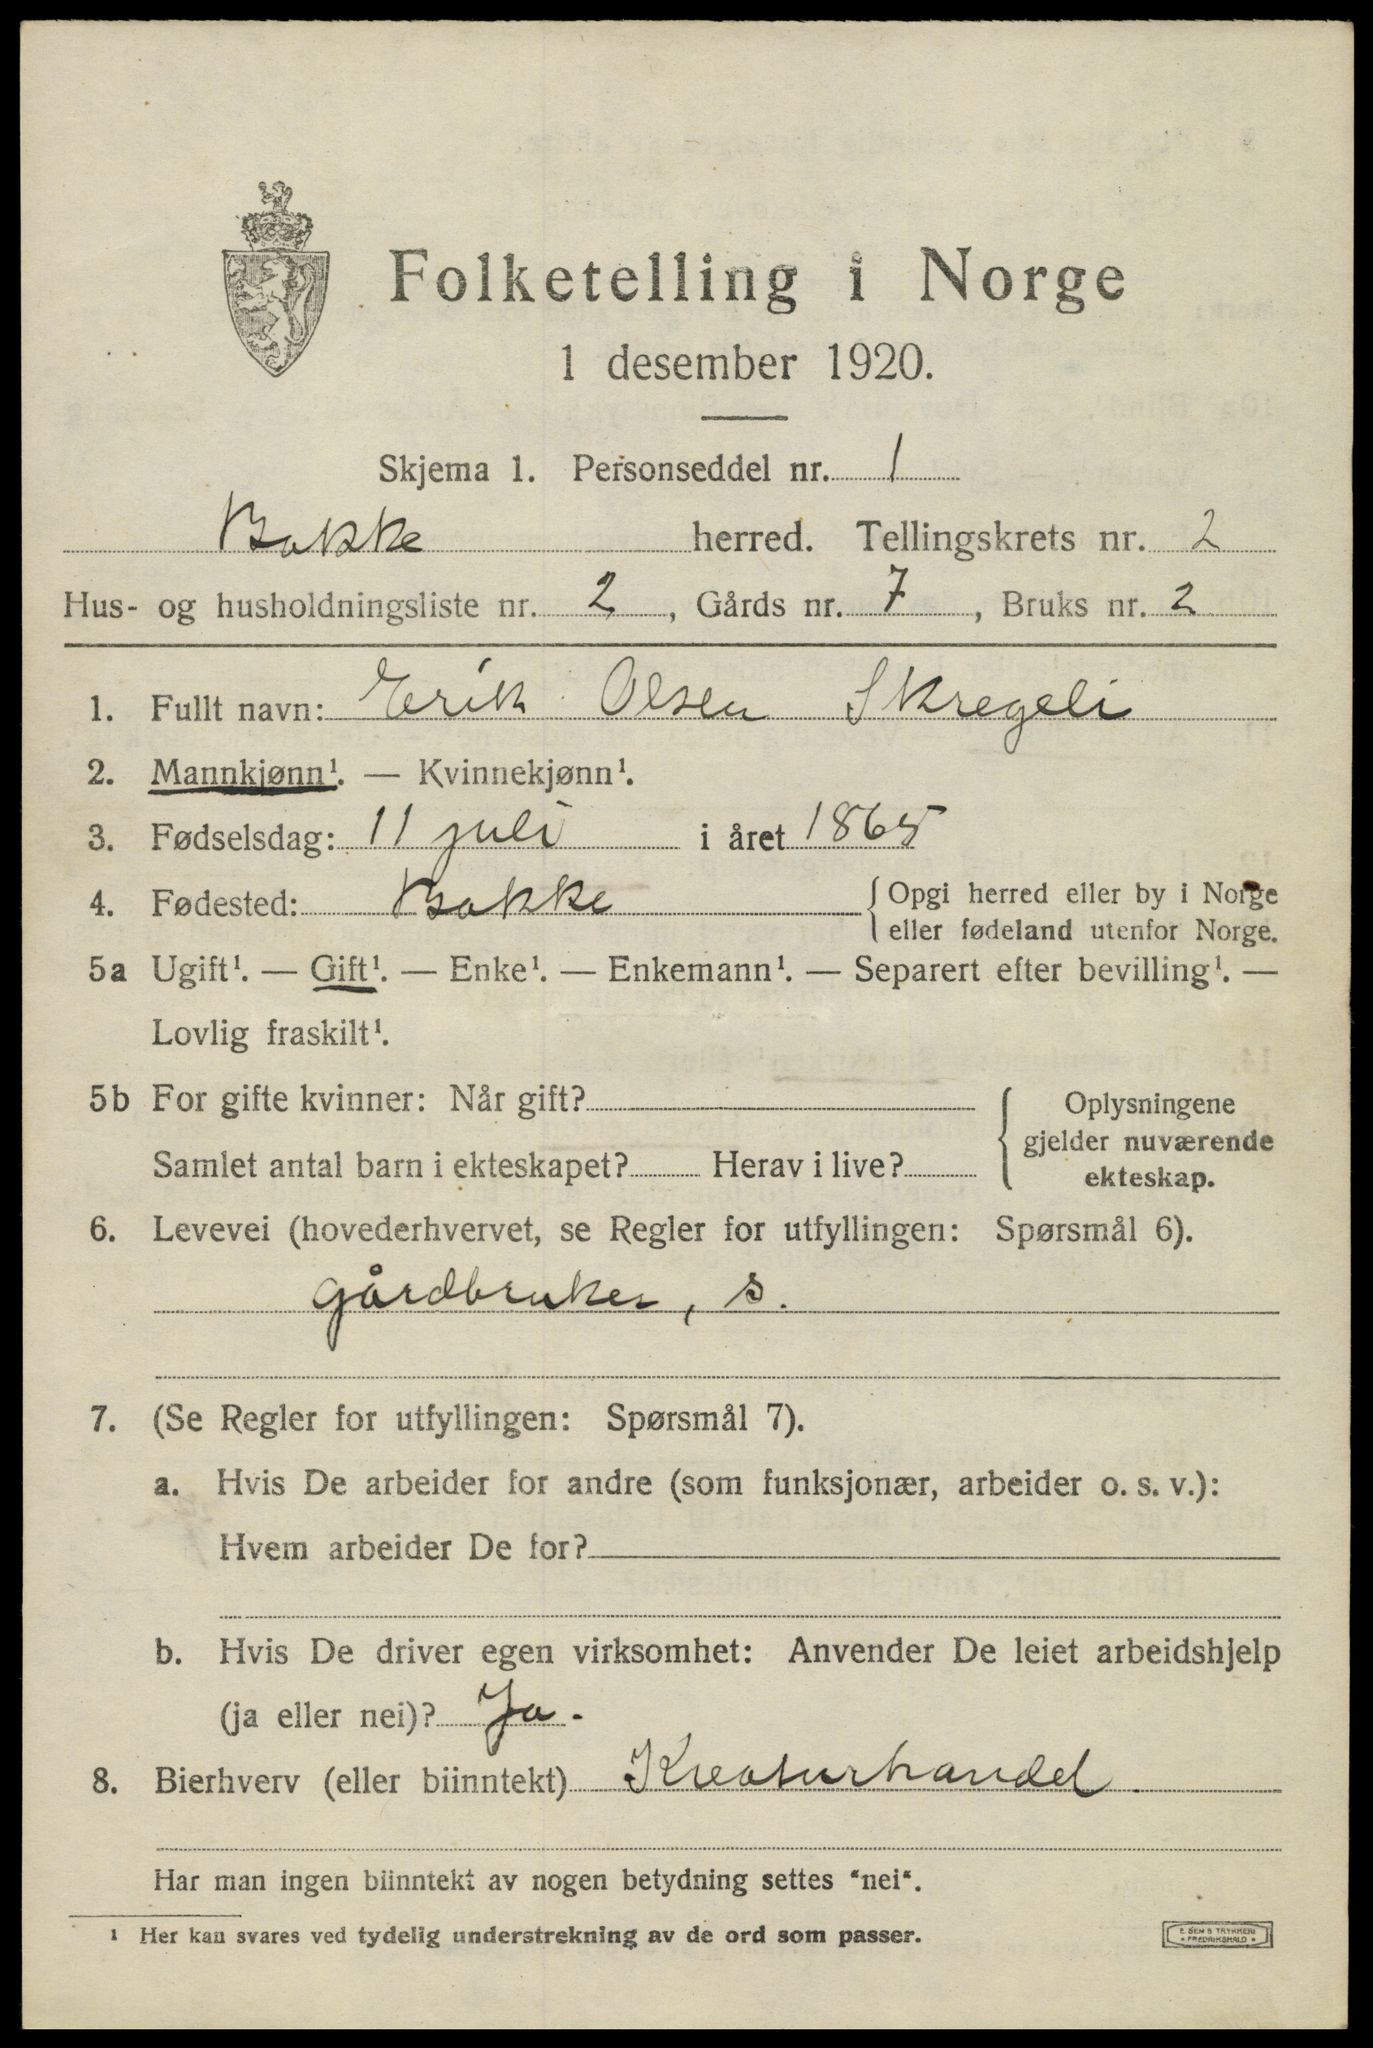 Folketelling i Norge
1 desember 1920.
Skjema 1. Personseddel nr. 1
Bakke herred. Tellingskrets nr. 2
Hus- og husholdningsliste nr. 2, Gårds nr. 7, Bruks nr. 2
1. Fullt navn: Erik Olsen Skregeli
2. Mannkjønn¹. — Kvinnekjønn¹.
3. Fødselsdag: 11 juli i året 1865
4. Fødested: Bakke { Opgi herred eller by i Norge
eller fødeland utenfor Norge.
5a Ugift¹. — Gift¹. — Enke¹. — Enkemann¹. — Separert efter bevilling¹. —
Lovlig fraskilt¹.
5b For gifte kvinner: Når gift? { Oplysningene
gjelder nuværende
Samlet antal barn i ekteskapet? Herav i live? ekteskap.
6. Levevei (hovederhvervet, se Regler for utfyllingen: Spørsmål 6).
gårdbruker, s.
7. (Se Regler for utfyllingen: Spørsmål 7).
a. Hvis De arbeider for andre (som funksjonær, arbeider o. s. v.):
Hvem arbeider De for?
b. Hvis De driver egen virksomhet: Anvender De leiet arbeidshjelp
(ja eller nei)? Ja.
8. Bierhverv (eller biinntekt) Kreaturhandel.
Har man ingen biinntekt av nogen betydning settes "nei".
¹ Her kan svares ved tydelig understrekning av de ord som passer.
E. SEM'S TRYKKERI
FREDRIKSHALD